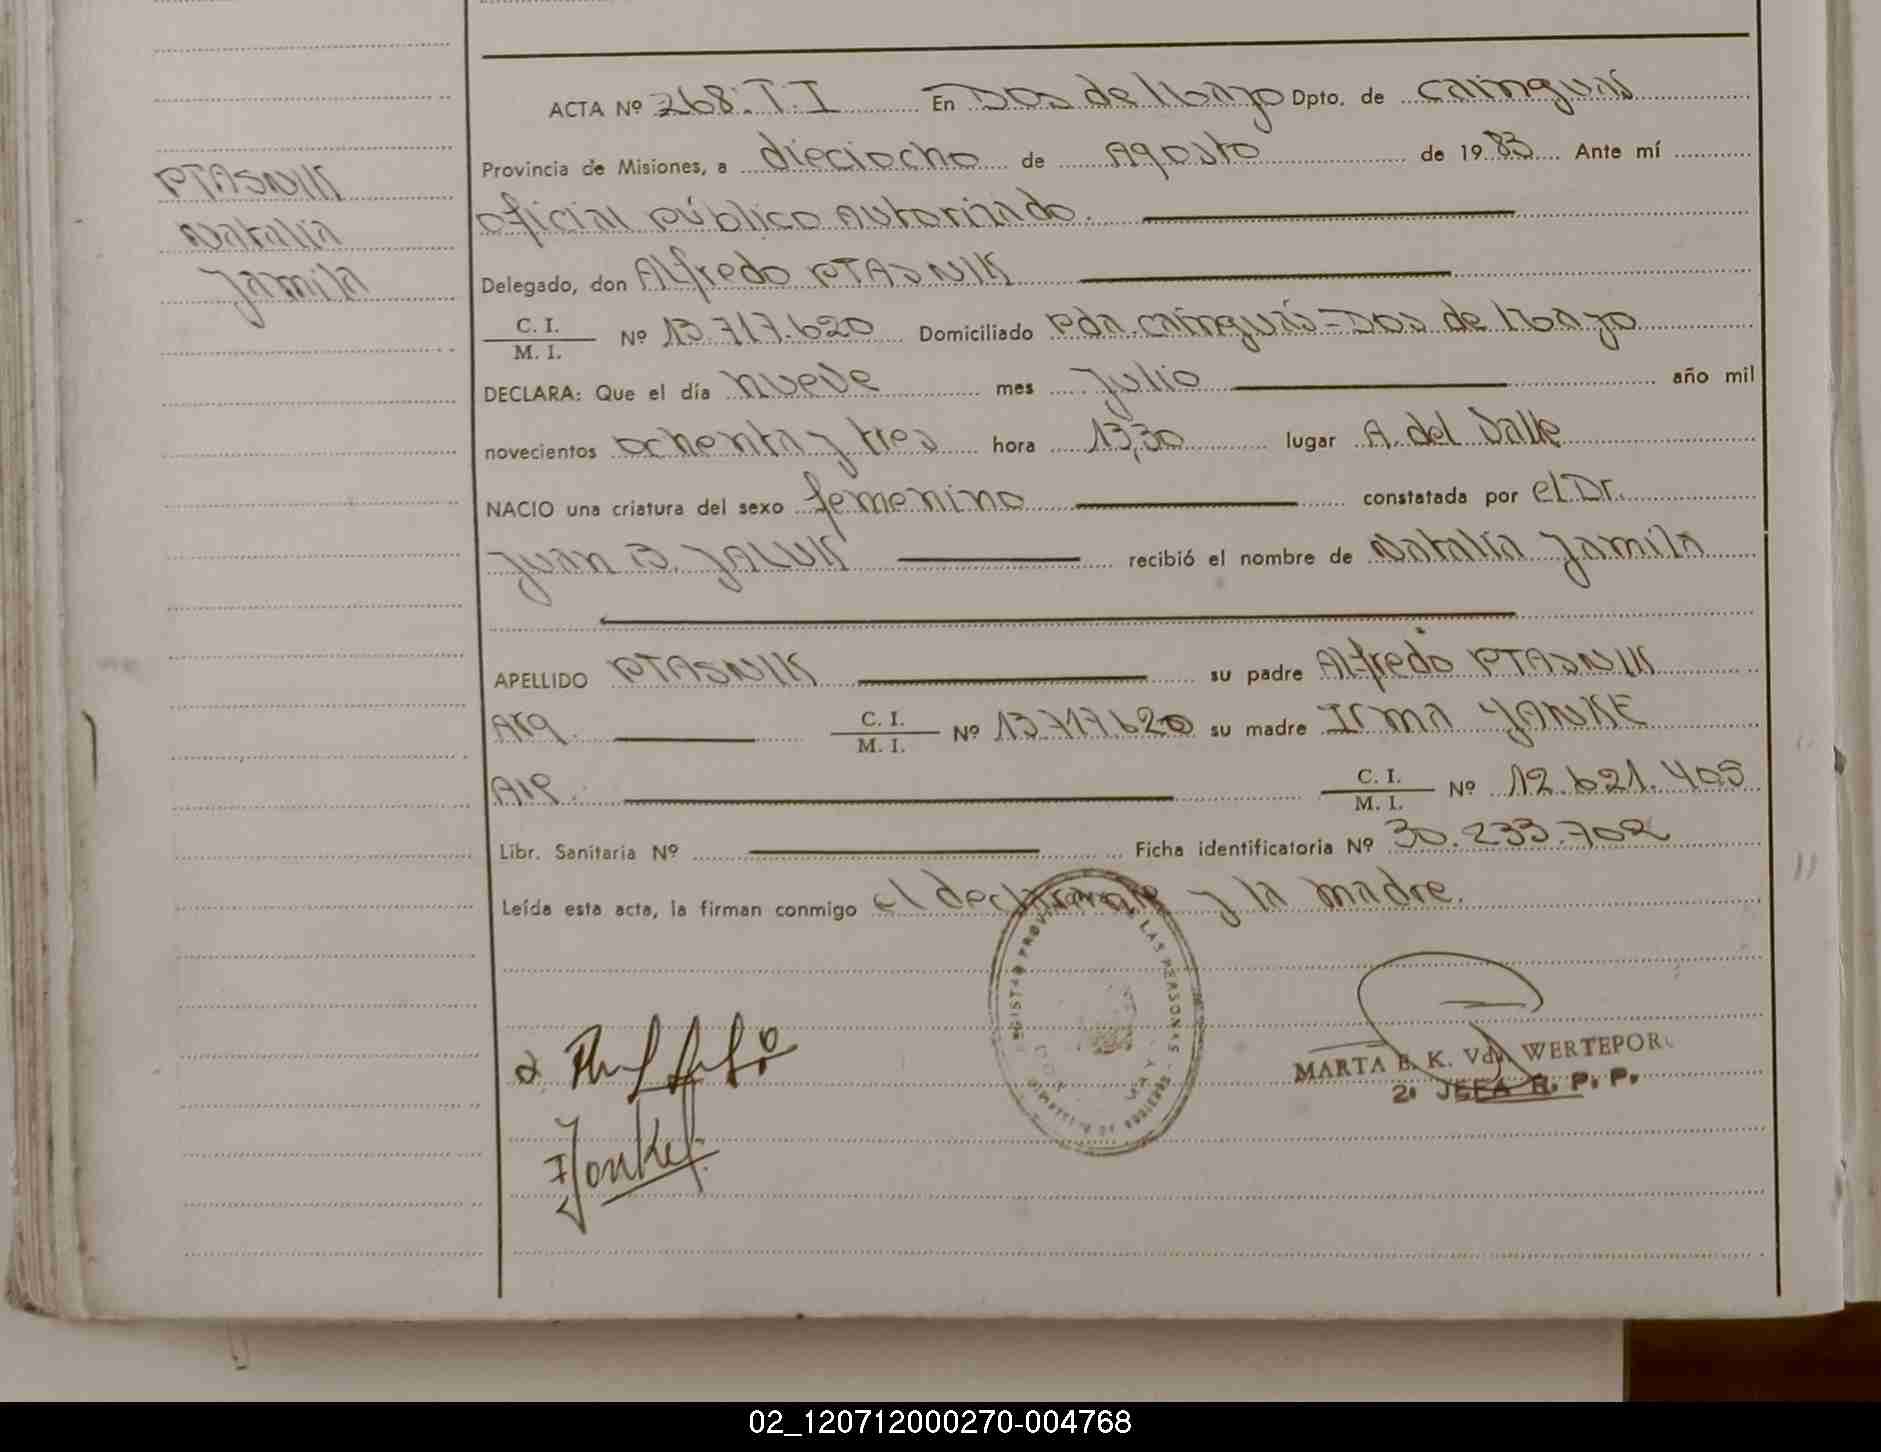 ACTA Nº 268.T.I En Dos de Mayo Dpto. de Cainguás
Provincia de Misiones, a dieciocho de Agosto de 1983 Ante mí
PTASNIK
Natalia
Jamila
oficial público Autorizado.
Delegado, don Alfredo PTASNIK
C. I.
M. I. Nº 13.717.620 Domiciliado Pda. Cainguás-Dos de Mayo
DECLARA: Que el día nueve mes Julio año mil
novecientos ochenta y tres hora 13,30 lugar A. del Valle
NACIO una criatura del sexo femenino constatada por el Dr.
Juan B. JALUK recibió el nombre de Natalia Jamila
APELLIDO PTASNIK su padre Alfredo PTASNIK
Arg. C. I.
M. I. Nº 13.717.620 su madre Irma YANKE
Arg. C. I.
M. I. Nº 12.621.405
Libr. Sanitaria Nº Ficha identificatoria Nº 30.233.702
Leída esta acta, la firman conmigo el declarante y la madre.
MARTA E. K. Vda. WERTEPOR
2. JEFA R. P. P.
02_120712000270-004768